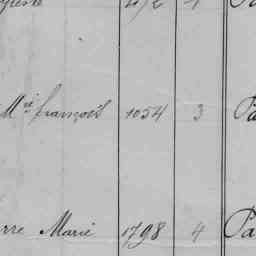 Mie françois 1054 3 Pa
rre Marie 1798 4 Pa